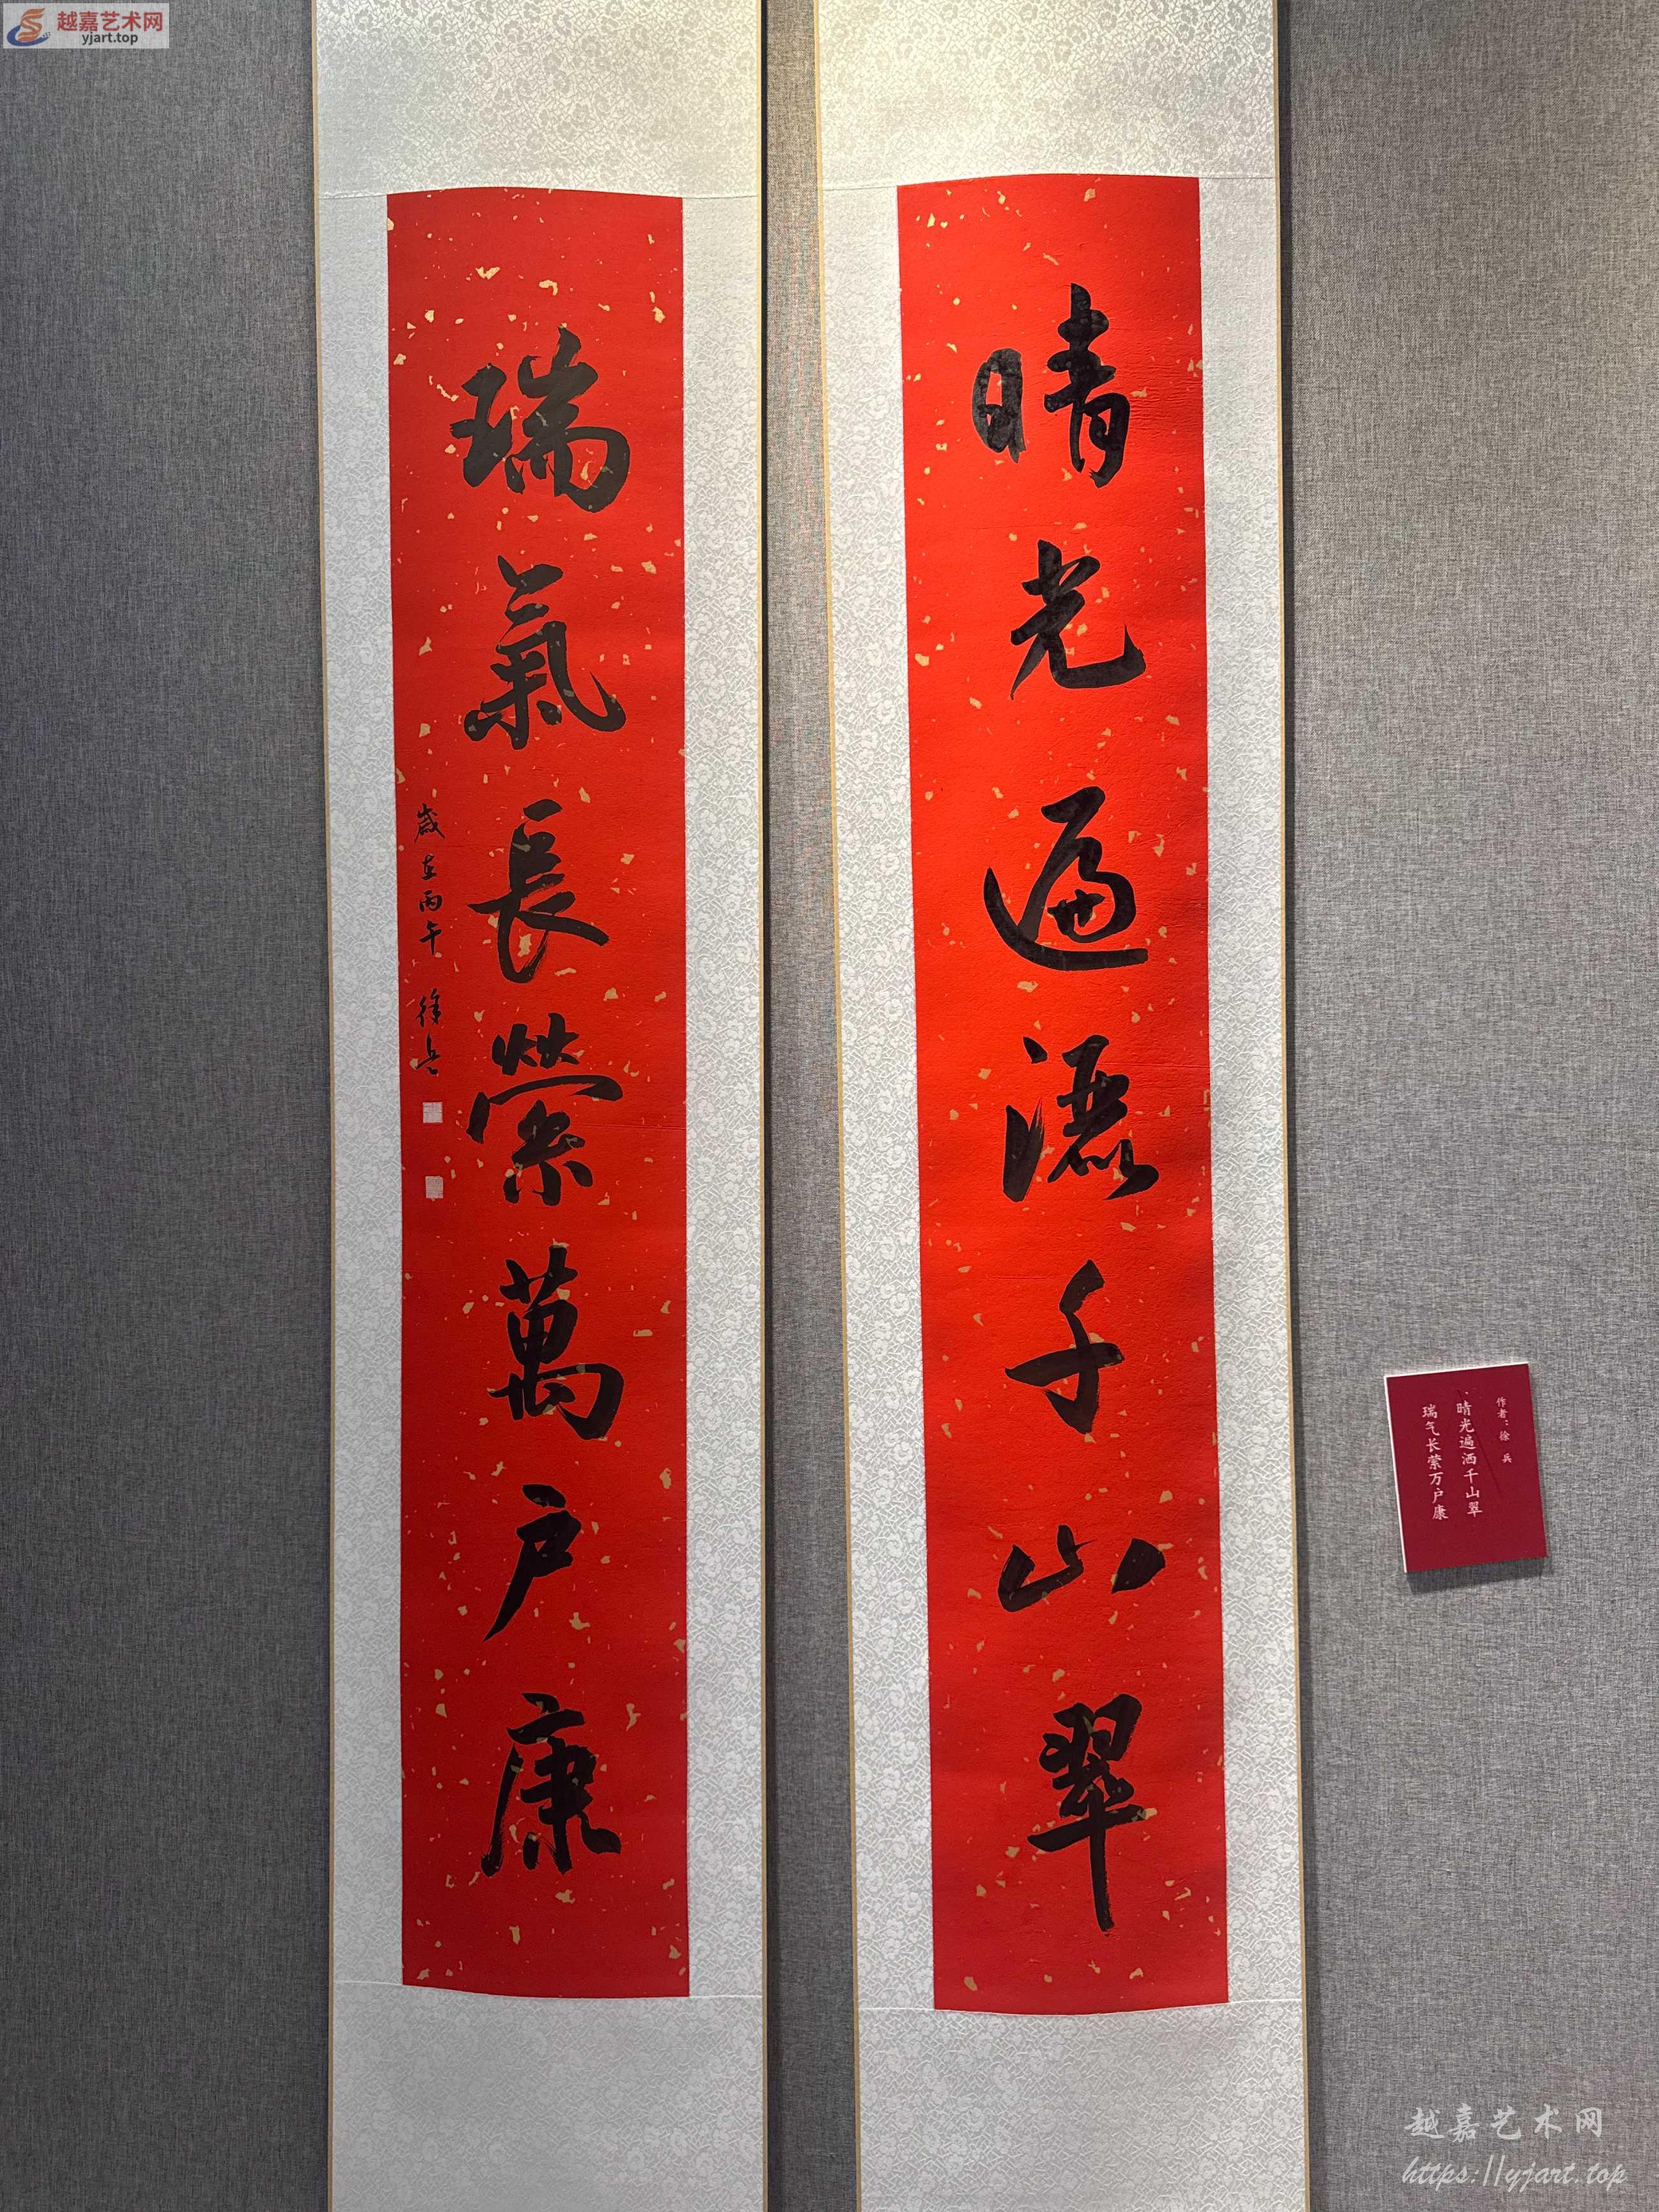 越嘉艺术网
yjart.top
晴光遍灑千山翠
瑞氣長縈萬戶康
歲在丙午 徐兵
作者：徐 兵
晴光遍洒千山翠
瑞气长萦万户康
越嘉艺术网
https://yjart.top